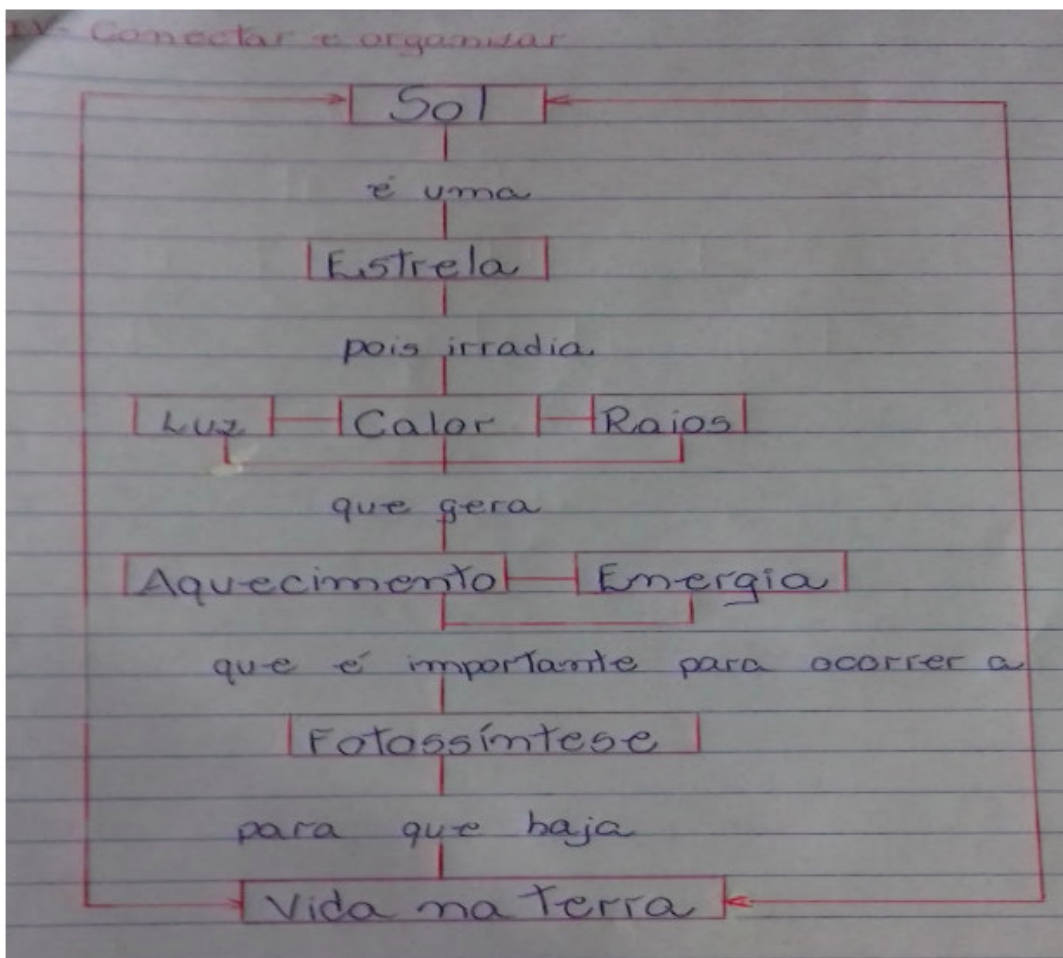 IV- Conectar e organizar
Sol
é uma
Estrela
pois irradia
Luz Calor Raios
que gera
Aquecimento Energia
que é importante para ocorrer a
Fotossíntese
para que haja
Vida na Terra